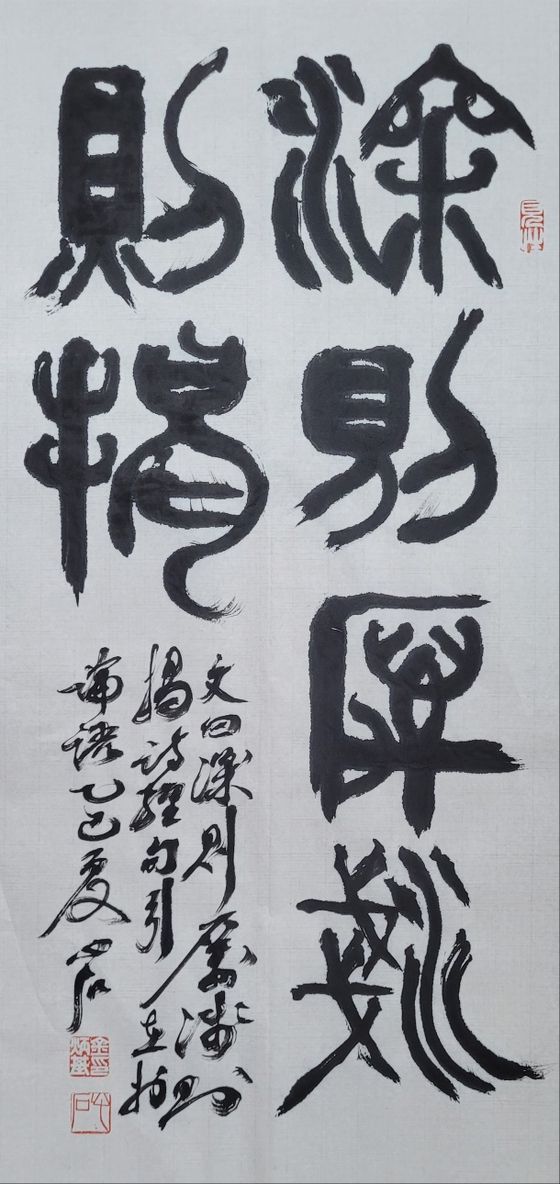 深則厲淺
則揭
文曰深則厲淺則
揭詩經句引在於
論語乙巳夏